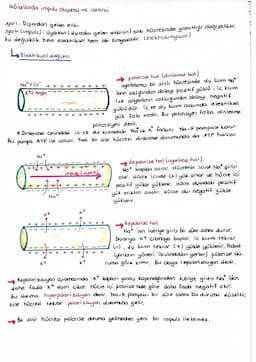 Nöronlarda impuls oluşumu ve iletimi
Uyarı : Dışarıdan gelen etki.
Uyartı (impuls) : Uyarının (dışarıdan gelen etkinin) sinir hücresinde yarattığı değişiklik.
Bu değişiklik hem elektriksel hem de kimyasaldır. (elektrokimyasal)
Elektriksel değişim
polarize hal (dinlenme hali)
Uyarılmamış bir sinir hücresinde dış kısım Na⁺
pozitif yüklü, iç kısım
ise
yüklüdür. İç ve dış kısım arasında elektriksel
yük farkı vardır. Bu potansiyel farka dinlenme
potansiyeli denir.
Dinlenme sırasındaki iç ve dış kısımdaki Na⁺ ve K⁺ farkını Na-K pompası korur.
Bu pompa ATP ile çalışır. Yani bir sinir hücresi dinlenme durumunda da ATP harcar.
Na⁺
K⁺
depolarize hal (uyarılmış hal)
Na⁺ kapıları açılır. Hücrenin içine Na⁺ girişi
olur. Hücre içinde (+) yük artar ve hücre içi
pozitif yükle yüklenir. Hücre dışındaki pozitif
yük miktarı azalır. Hücre dışı negatif yükle
yüklenir.
Na⁺
K⁺
Repolarize hal
Na⁺ nın içeriye girişi bir süre sonra durur.
Bu arada K⁺ çıkmaya başlar. İç kısım tekrar
(-), dış kısım tekrar (+) yükle yüklenir. Yani
iyonların yönleri (bulundukları yerler) polarize du-
ruma göre zıttır. Bu olaya repolarizasyon denir.
Repolarizasyon aşamasında K⁺ kapıları yavaş kapandığından içeriye giren Na⁺ dan
daha fazla K⁺ dışarı çıkar. Hücre içi polarize hale göre daha fazla negatif olur.
Bu duruma hiperpolarizasyon denir. Na-K pompası bir süre sonra bu durumu düzeltir,
sinir hücresi tekrar polarize durumuna gelir.
Bir sinir hücresi polarize duruma gelmeden yeni bir impuls iletemez.